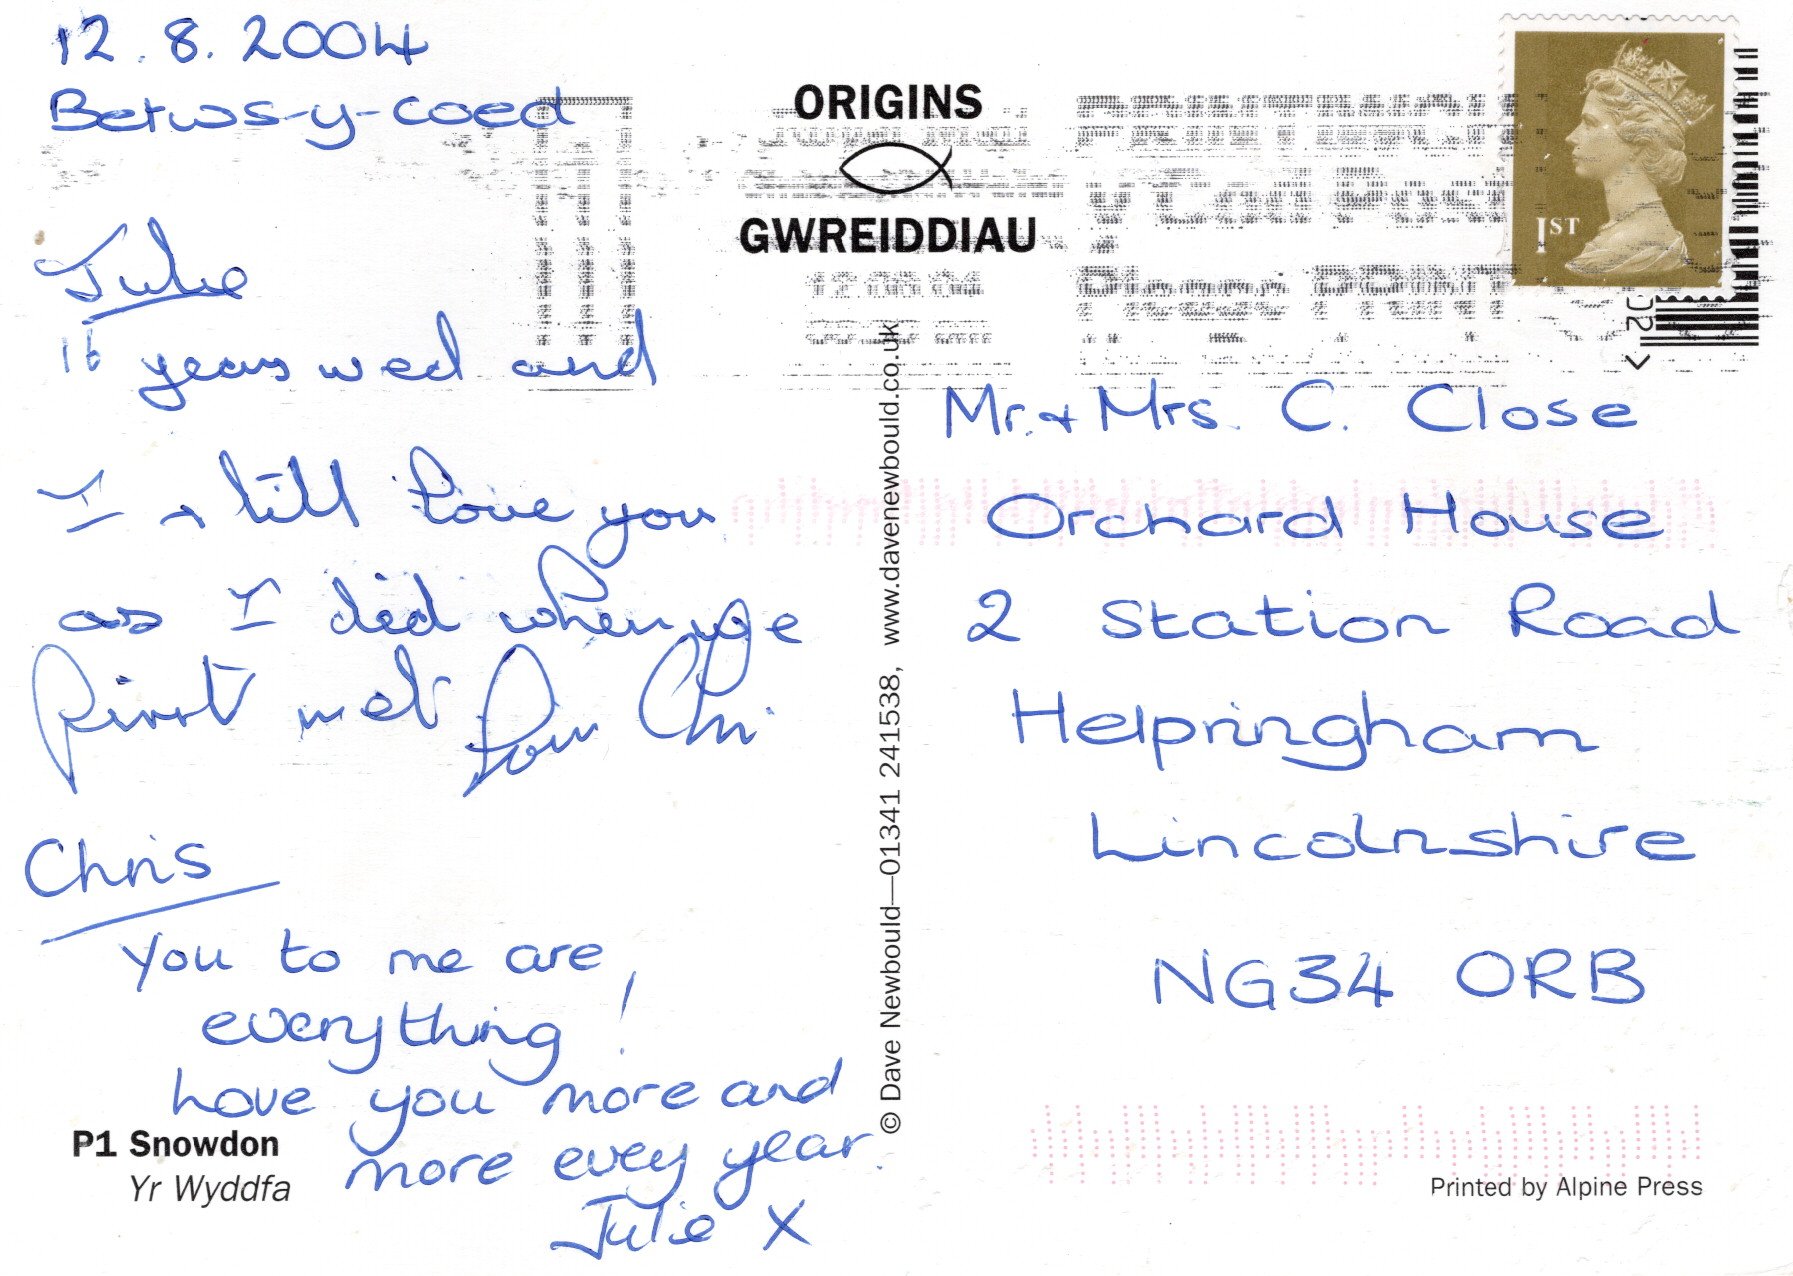 12.8.2004
Betws-y-coed
Julie
16 years wed and
I still love you
as I did when we
first met
Chris
You to me are
everything!
Love you more and
more evey year.
Julie X
P1 Snowdon
Yr Wyddfa
ORIGINS
GWREIDDIAU
© Dave Newbould—01341 241538, www.davenewbould.co.uk
1ST
Please
Mr. + Mrs. C. Close
Orchard House
2 Station Road
Helpringham
Lincolnshire
NG34 ORB
Printed by Alpine Press